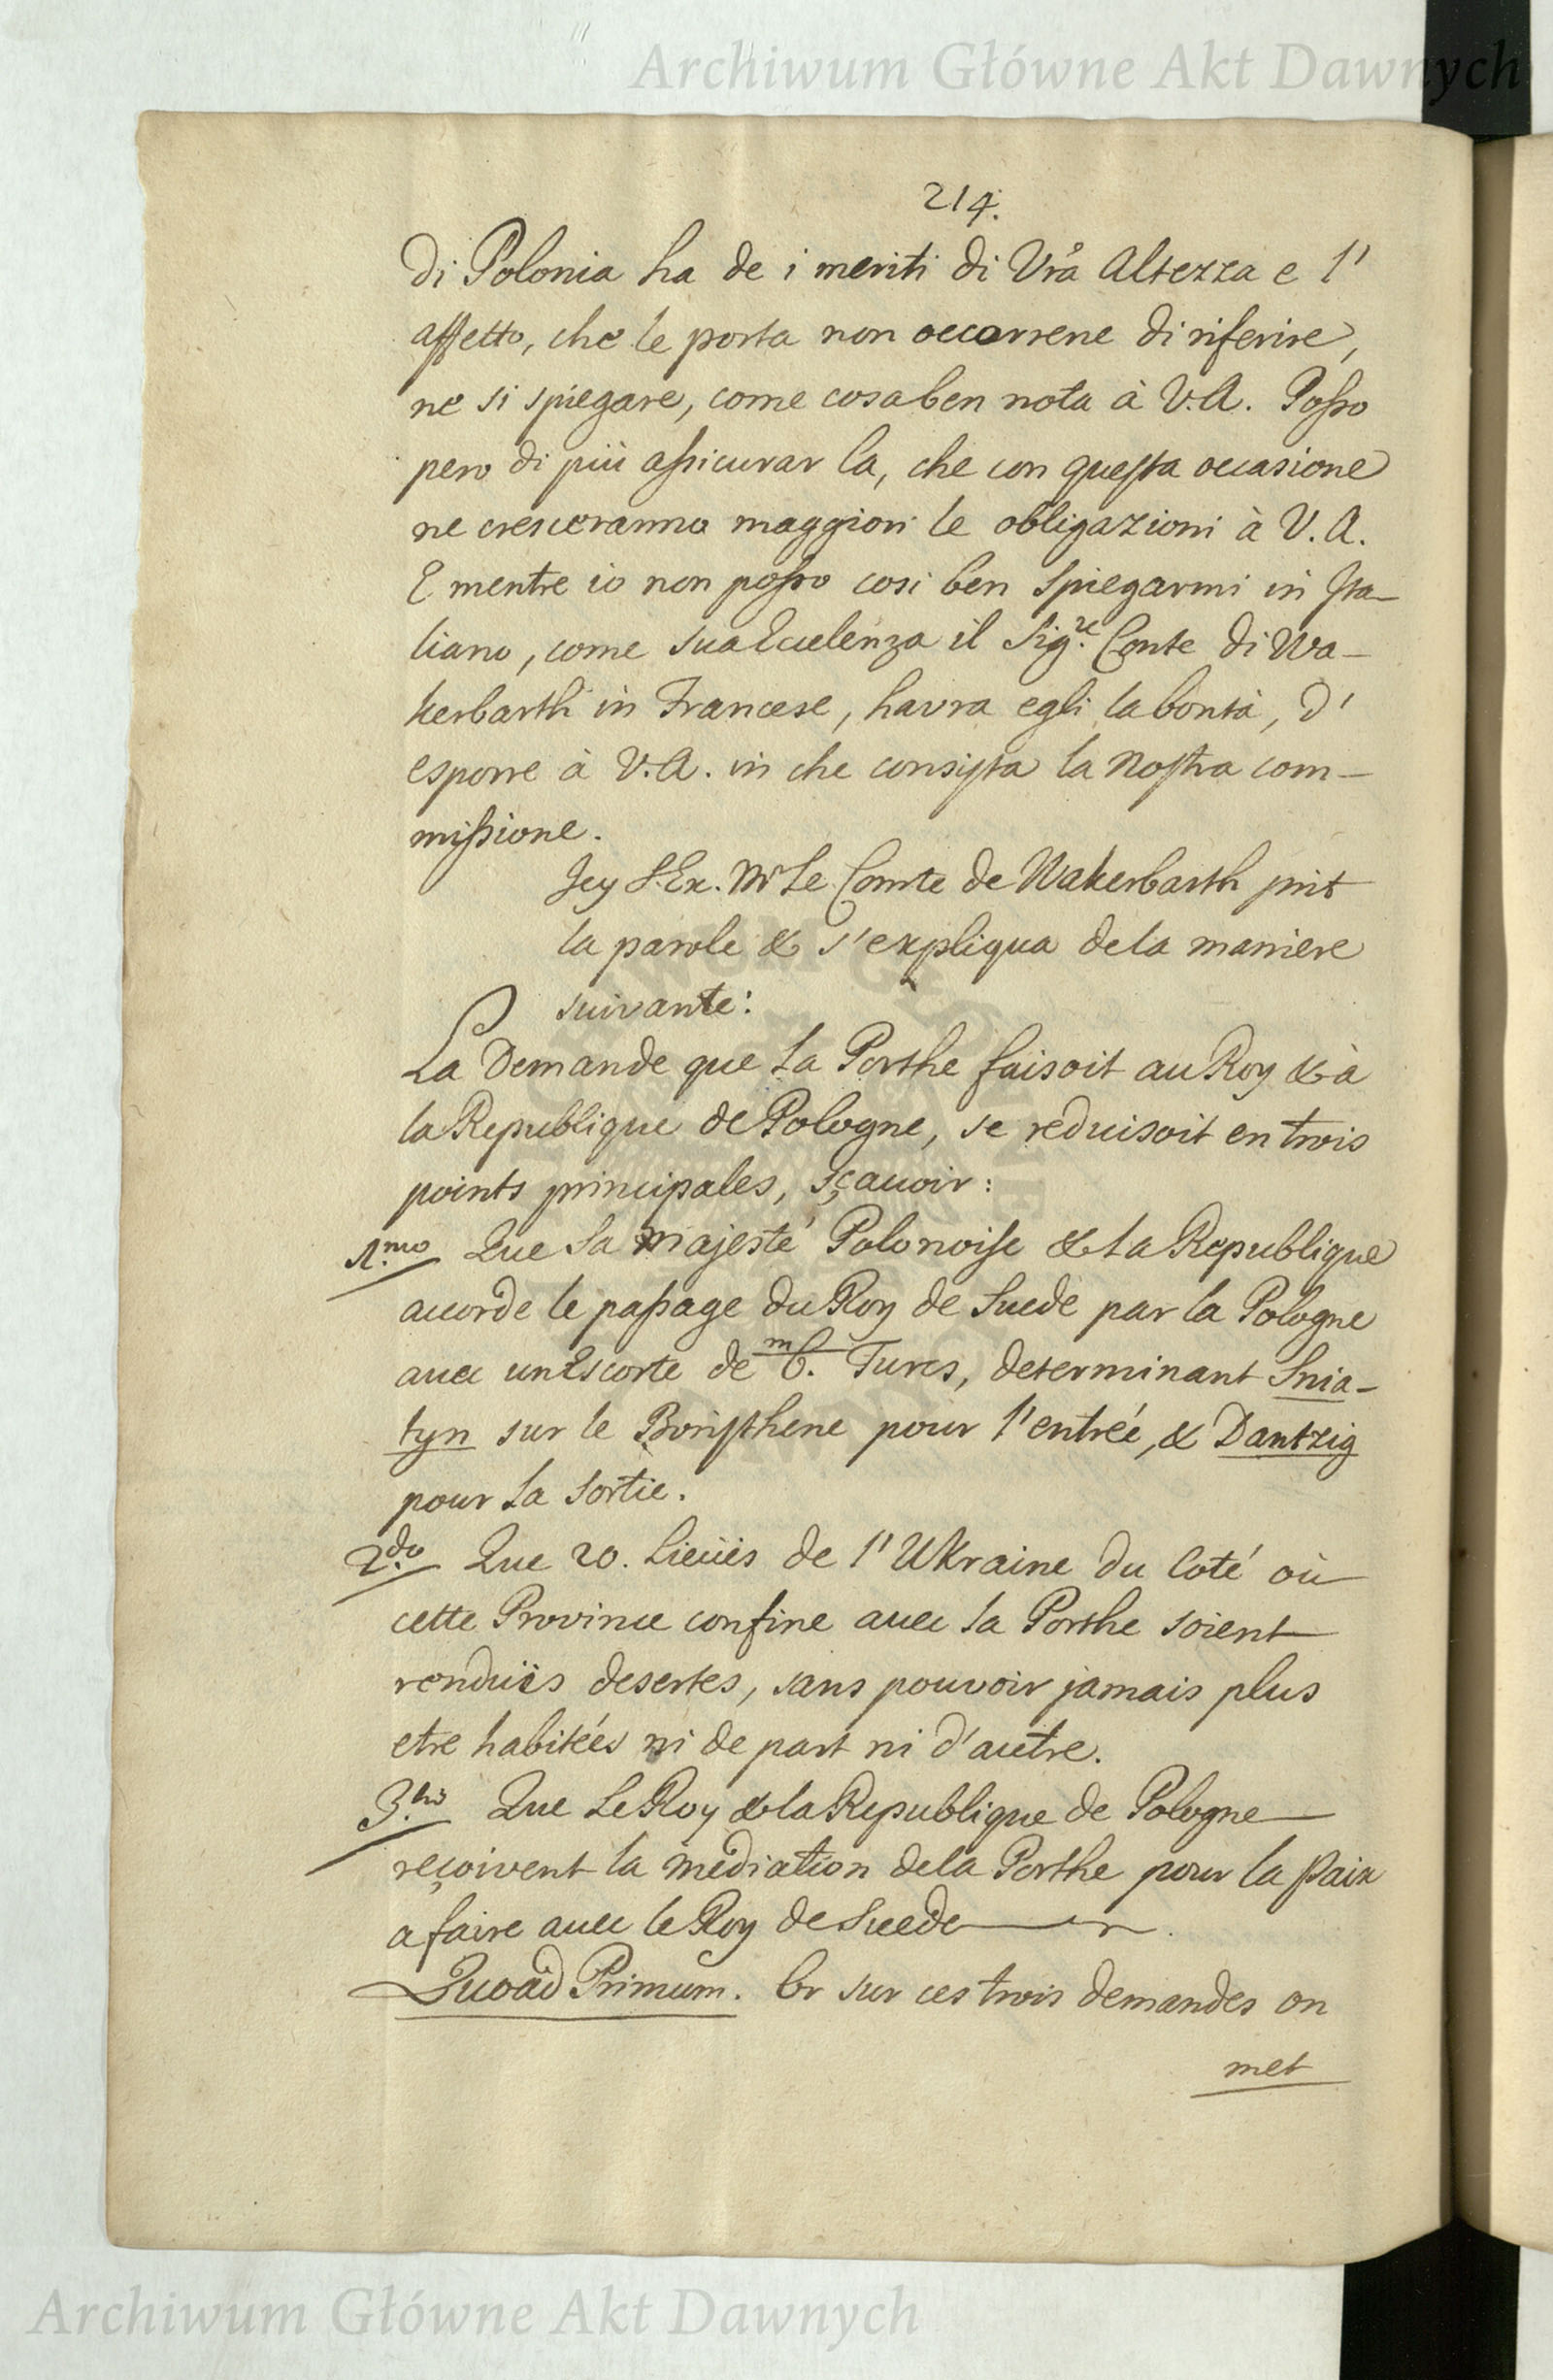 Archiwum Główne Akt Dawnych
214.
di Polonia ha de i meriti di Vra Altezza e l'
affetto, che le porta non occorrene di riferire,
ne si spiegare, come cosa ben nota à V.A. Posso
pero di più assicurar la, che con questa occasione
ne cresceranno maggiori le obligazioni à V.A.
E mentre io non posso cosi ben spiegarmi in Ita-
liano, come sua Eccelenza il Sig.re Conte di Wa-
kerbarth in Francese, havra egli la bontà, d'
esporre à V.A. in che consista la nostra com-
missione.
Icy S.Ex. Mr Le Comte de Wakerbarth prit
la parole & s'expliqua de la maniere
suivante:
La Demande que la Porthe faisoit au Roy & à
la Republique de Pologne, se reduisoit en trois
points principales, sçavoir:
1.mo Que Sa Majesté Polonoise & la Republique
accorde le passage du Roy de Suede par la Pologne
avec un Escorte de m/6. Turcs, determinant Snia-
tyn sur le Boristhene pour l'entrée, & Dantzig
pour la sortie.
2.do Que 20. Lieües de l'Ukraine du Coté où
cette Province confine avec la Porthe soient
renduës desertes, sans pouvoir jamais plus
etre habitées ni de part ni d'autre.
3.tio Que Le Roy & la Republique de Pologne
reçoivent la mediation de la Porthe pour la Paix
a faire avec le Roy de Suede.
Quoad Primum. Or sur ces trois demandes on
met
Archiwum Główne Akt Dawnych